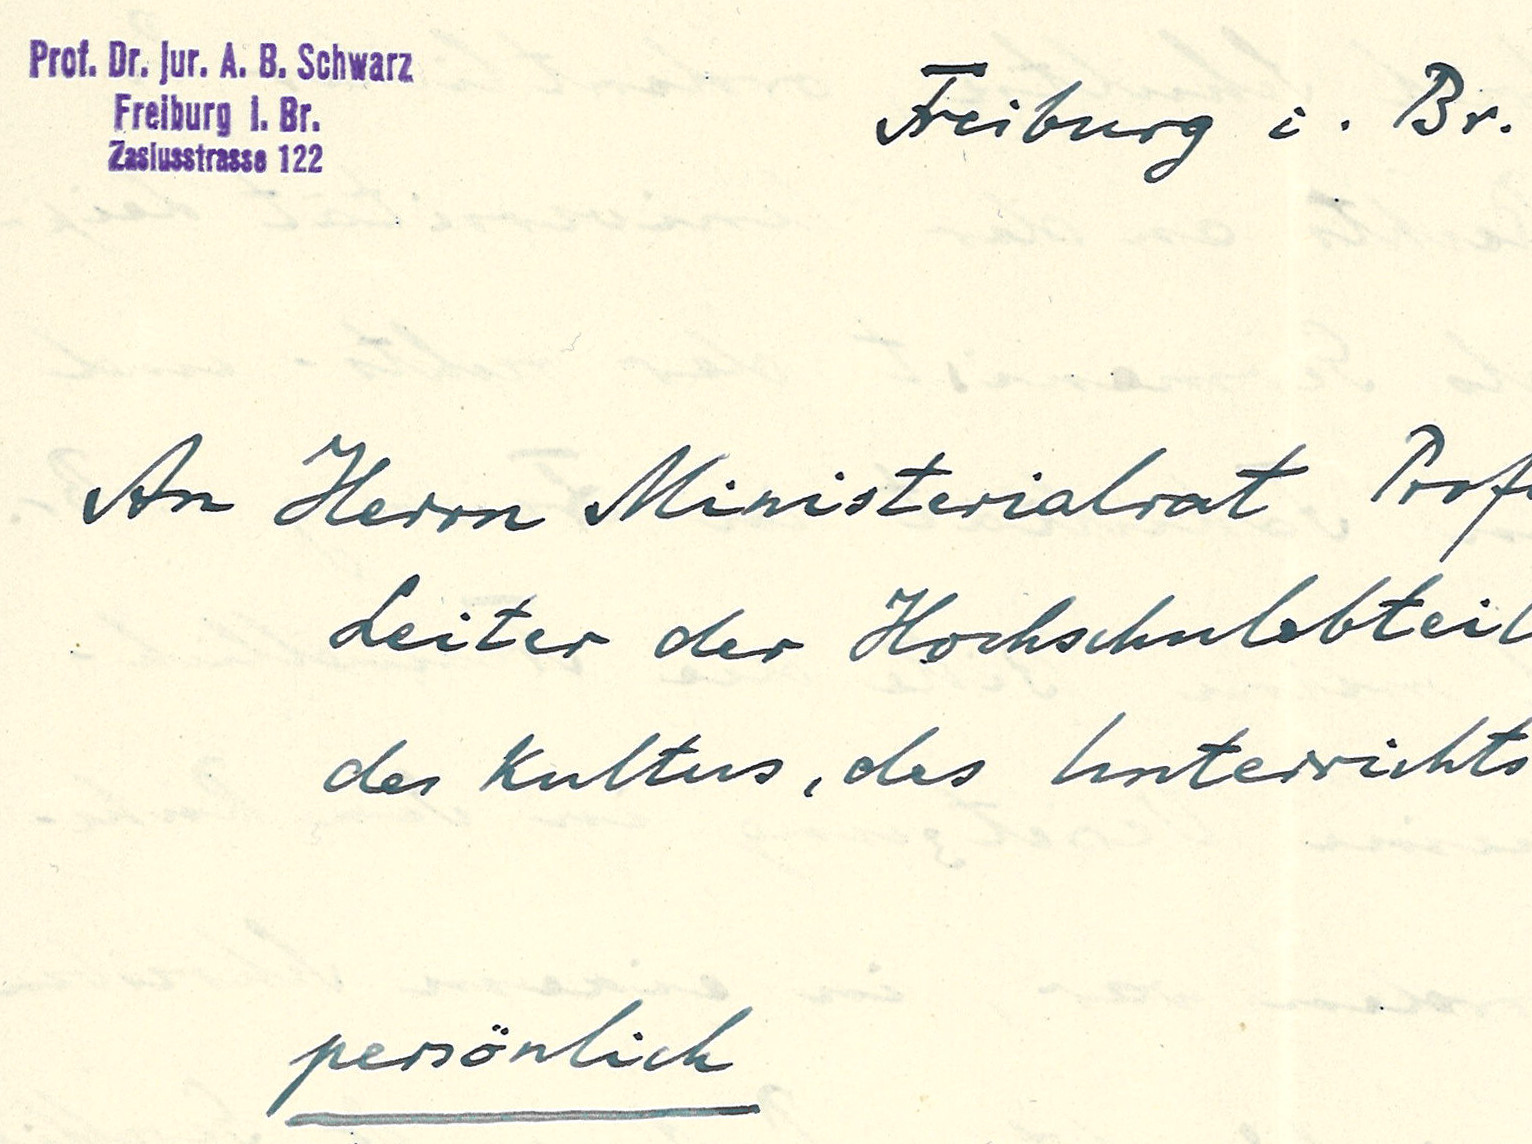 Prof. Dr. jur. A. B. Schwarz
Freiburg i. Br.
Zasiusstrasse 122
Freiburg i. Br.
An Herrn Ministerialrat Prof
Leiter der Hochschulabteil
des Kultus, des Unterrichts
persönlich